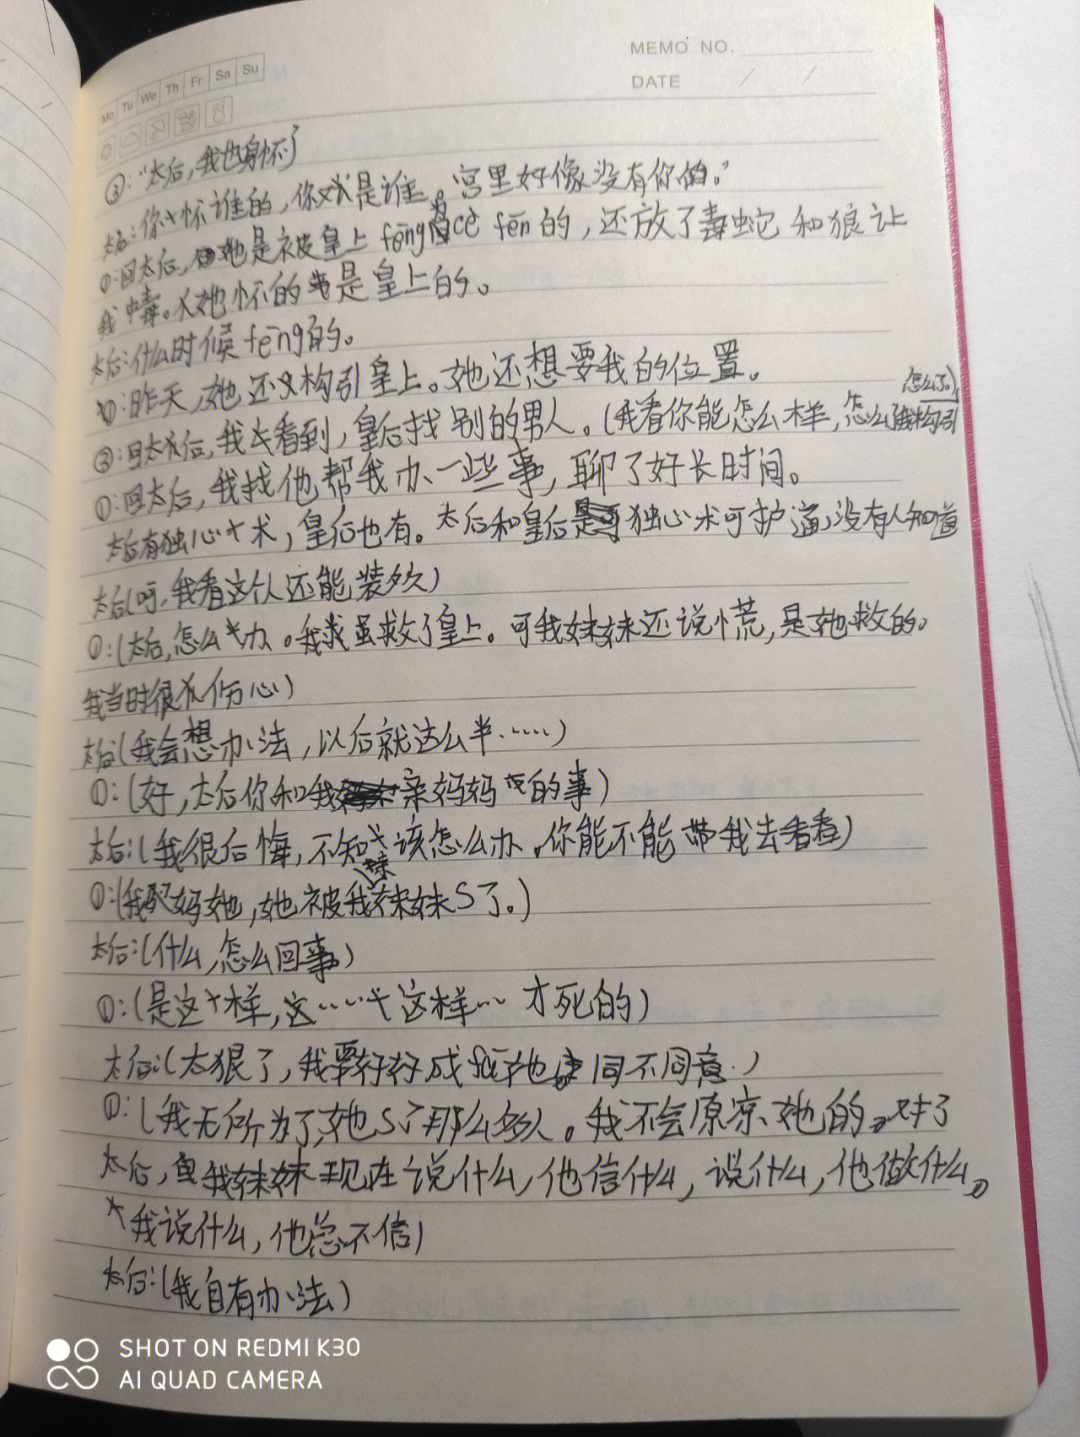 MEMO NO.
DATE / /
Mo Tu We Th Fr Sa Su
③:"太后,我也身怀了
太后:你怀谁的,你又是谁。宫里好像没有你的."
①:回太后,她是被皇上 fēng 为 cè fēn 的,还放了毒蛇 和狼让
我中毒。她怀的是皇上的。
太后:什么时候 fēng的。
①:昨天,她还又构引皇上。她还想要我的位置。
怎么了)
③:回太后,我去看到,皇后找别的男人。(我看你能怎么样,怎么构引
①:回太后,我找他帮我办一些事,聊了好长时间。
太后有独心术,皇后也有。太后和皇后独心术可护逼,没有人知道
太后(呵,我看这个人还能装多久)
①:(太后,怎么办。我虽救了皇上。可我妹妹还说慌,是她救的。
我当时很伤心)
太后:(我会想办法,以后就这么半……)
①:(好,太后你和我亲妈妈的事)
太后:(我很后悔,不知该怎么办。你能不能带我去看看)
①:(我妈她,她被我妹妹S了。)
太后:(什么,怎么回事)
①:(是这样,这……这样… 才死的)
太后:(太狠了,我要好好成她 同不同意.)
①:(我无所为了,她S了那么多人。我不会原凉她的。对了
太后,我妹妹现在说什么,他信什么,说什么,他做什么。
我说什么,他总不信)
太后:(我自有办法)
SHOT ON REDMI K30
AI QUAD CAMERA